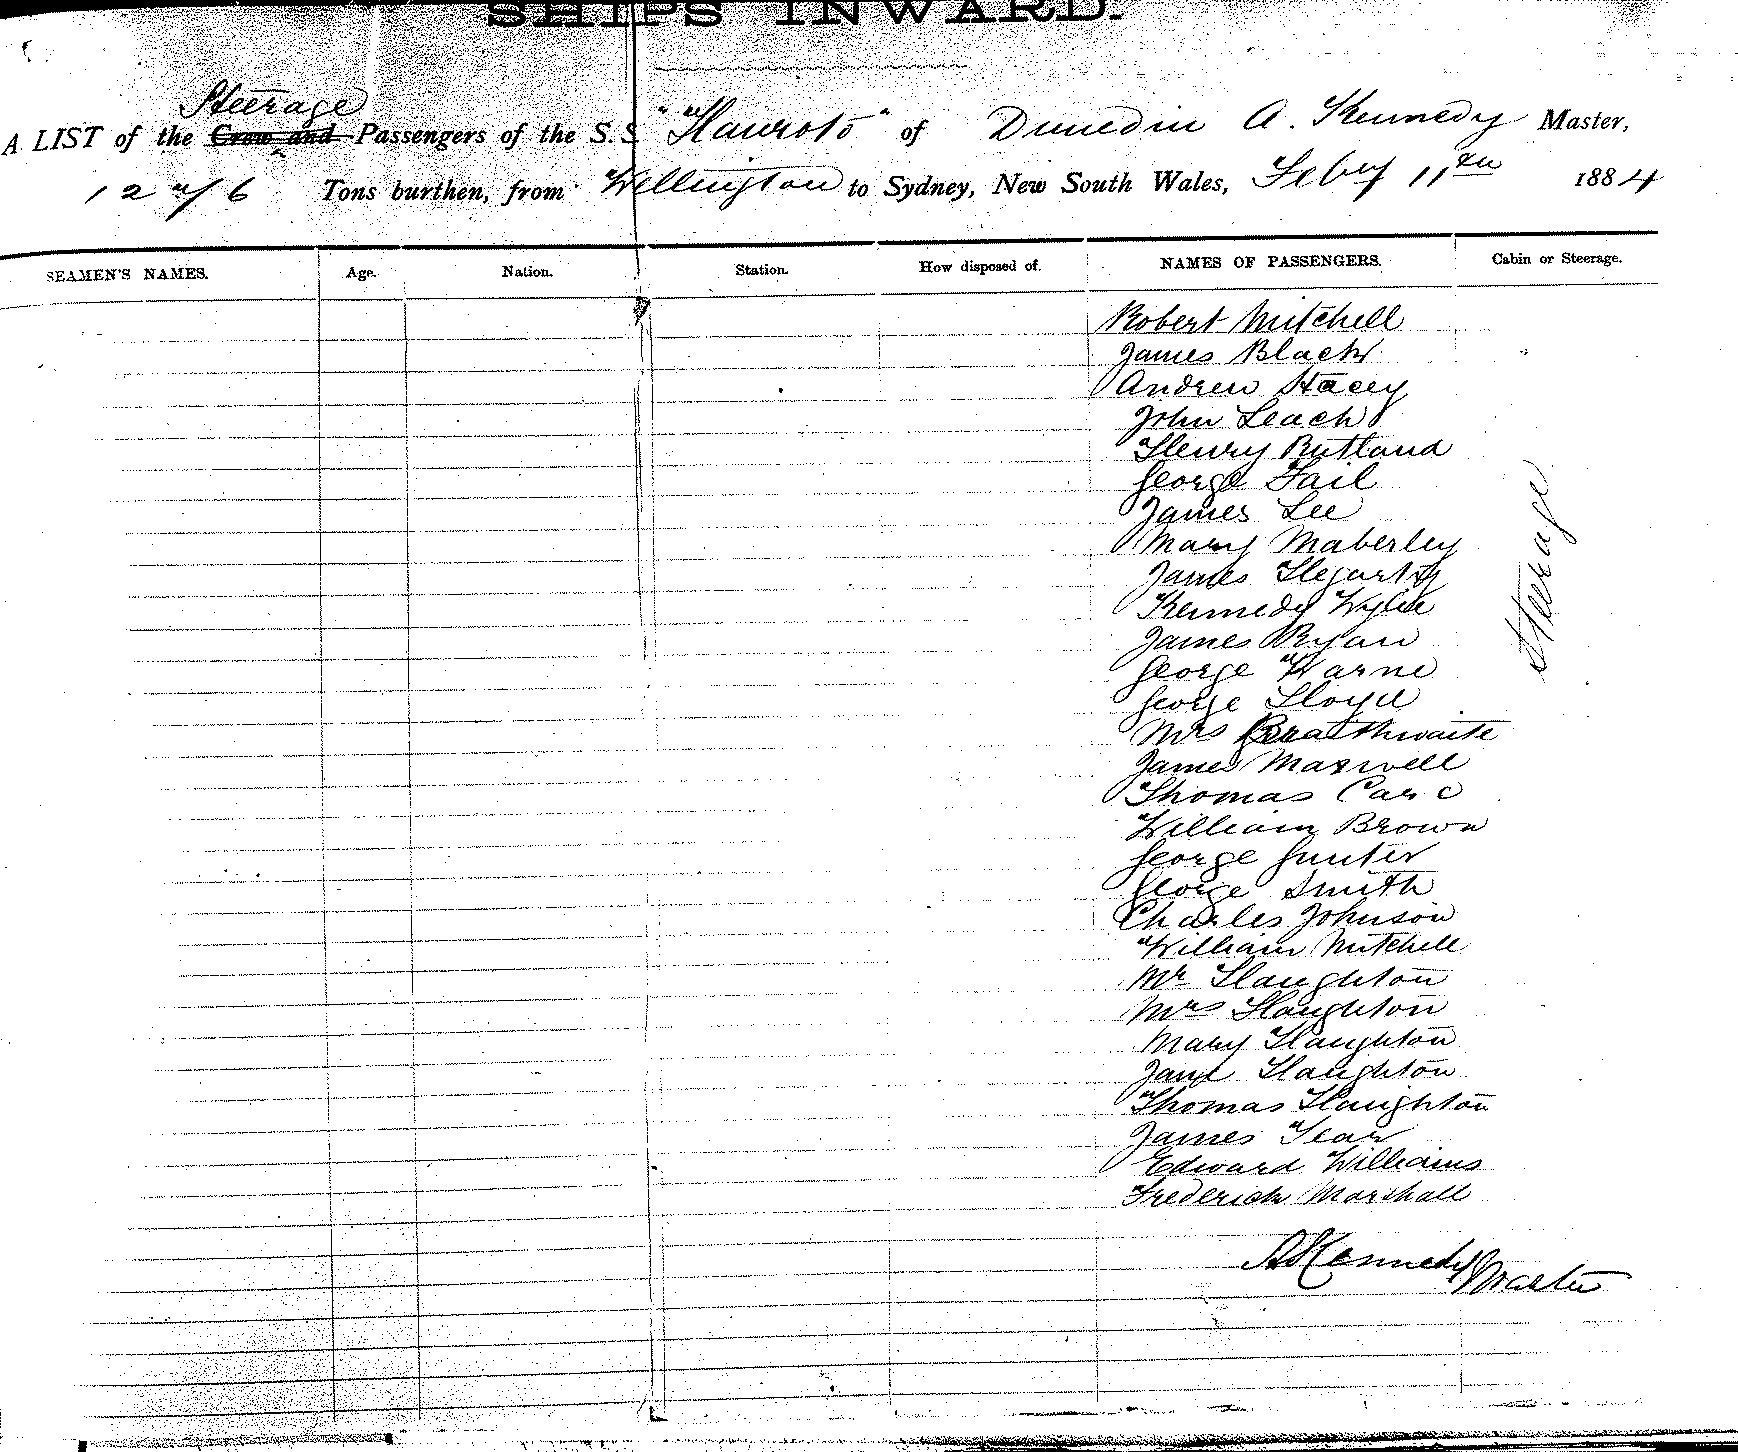 SHIPS INWARD.
Steerage
A LIST of the Crew and Passengers of the S.S. "Hauroto" of Dunedin A. Kennedy Master,
Tons burthen, from Wellington to Sydney, New South Wales, Feby 11th 1884
SEAMEN'S NAMES. Age. Nation. Station. How disposed of. NAMES OF PASSENGERS. Cabin or Steerage.
Robert Mitchell
James Black
Andrew Stacey
John Leach
Henry Rutland
George Fail
James Lee
Mary Maberley
James Hegarty
Kennedy Wylie
James Ryan
George Warne
George Lloyd
Mrs Braithwaite
James Maxwell
Thomas
William Brown
George Gunter
George Smith
Charles Johnson
William Mitchell
Mr Haughton
Mrs Haughton
Mary Haughton
Jane Haughton
Thomas Haughton
James
Edward Williams
Frederick Marshall
Steerage
A Kennedy Master